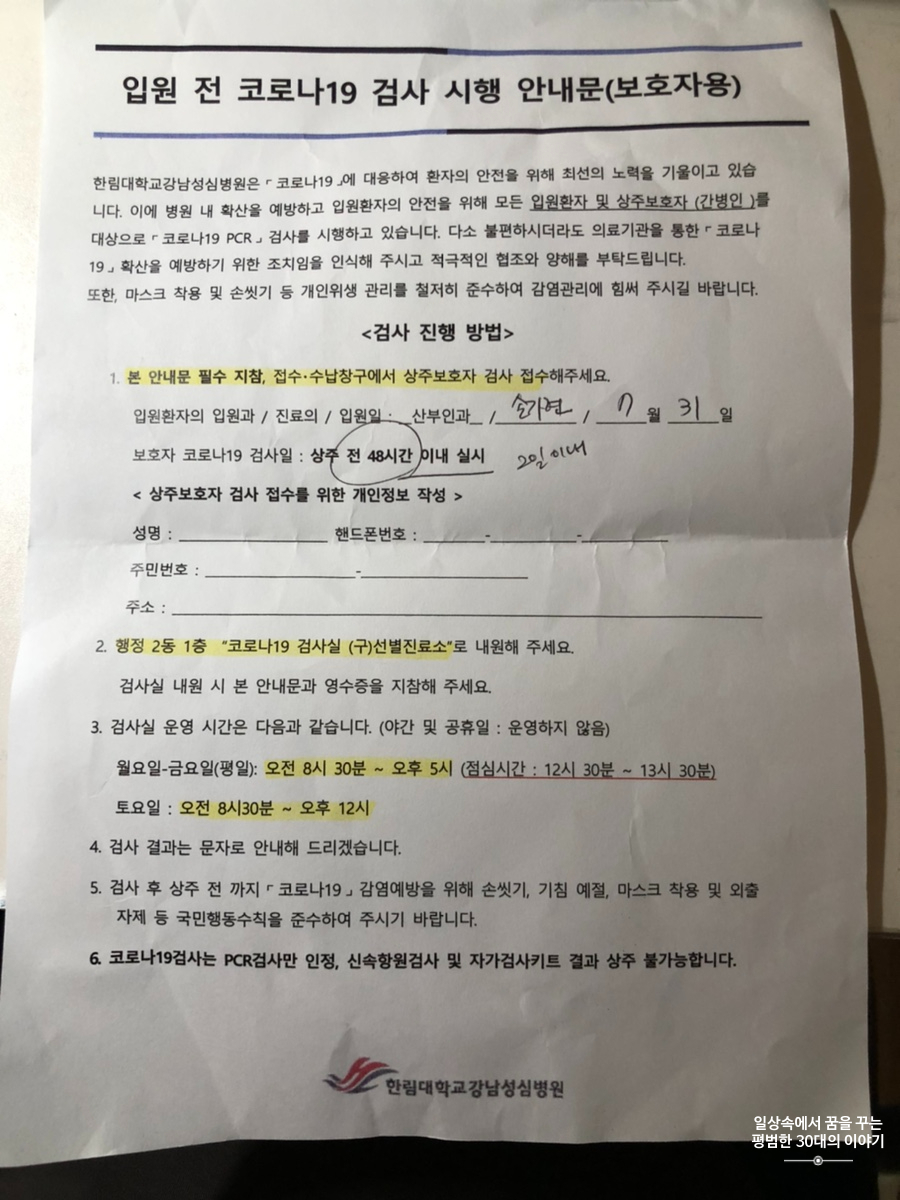 입원 전 코로나19 검사 시행 안내문(보호자용)
한림대학교강남성심병원은「코로나19」에 대응하여 환자의 안전을 위해 최선의 노력을 기울이고 있습
니다. 이에 병원 내 확산을 예방하고 입원환자의 안전을 위해 모든 입원환자 및 상주보호자 (간병인 )를
대상으로「코로나19 PCR」검사를 시행하고 있습니다. 다소 불편하시더라도 의료기관을 통한「코로나
19」확산을 예방하기 위한 조치임을 인식해 주시고 적극적인 협조와 양해를 부탁드립니다.
또한, 마스크 착용 및 손씻기 등 개인위생 관리를 철저히 준수하여 감염관리에 힘써 주시길 바랍니다.
<검사 진행 방법>
1. 본 안내문 필수 지참, 접수·수납창구에서 상주보호자 검사 접수해주세요.
입원환자의 입원과 / 진료의 / 입원일 : _산부인과_ / 송가현 / 7 월 31 일
보호자 코로나19 검사일 : 상주 전 48시간 이내 실시 2일 이내
< 상주보호자 검사 접수를 위한 개인정보 작성 >
성명 : ____________ 핸드폰번호 : _____-_______-_______
주민번호 : ____________-_____________
주소 : ________________________________________________
2. 행정 2동 1층 "코로나19 검사실 (구)선별진료소"로 내원해 주세요.
검사실 내원 시 본 안내문과 영수증을 지참해 주세요.
3. 검사실 운영 시간은 다음과 같습니다. (야간 및 공휴일 : 운영하지 않음)
월요일-금요일(평일): 오전 8시 30분 ~ 오후 5시 (점심시간 : 12시 30분 ~ 13시 30분)
토요일 : 오전 8시30분 ~ 오후 12시
4. 검사 결과는 문자로 안내해 드리겠습니다.
5. 검사 후 상주 전 까지「코로나19」감염예방을 위해 손씻기, 기침 예절, 마스크 착용 및 외출
자제 등 국민행동수칙을 준수하여 주시기 바랍니다.
6. 코로나19검사는 PCR검사만 인정, 신속항원검사 및 자가검사키트 결과 상주 불가능합니다.
한림대학교강남성심병원
일상속에서 꿈을 꾸는
평범한 30대의 이야기